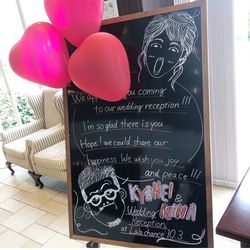 We app    you coming
to our wedding reception!!!
I'm so glad there is you
Hope! we could share our
happiness We wish you joy
and peace!!!
KYOHEI
&
NINA
Wedding
Reception
at Lala chance 10.3